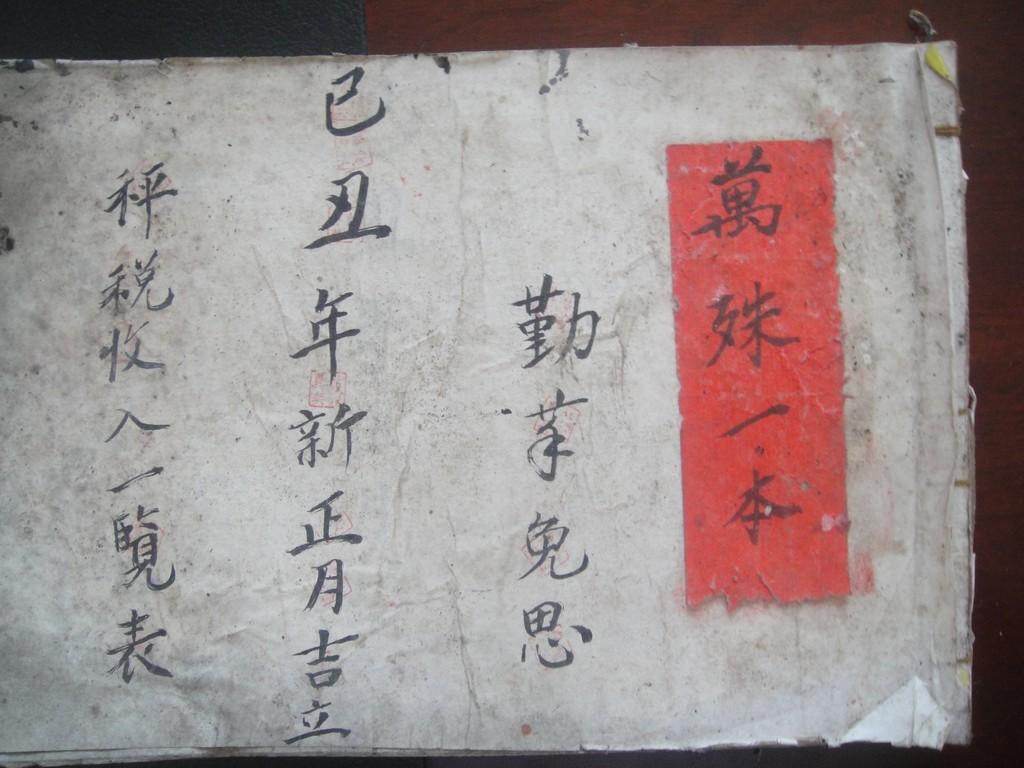 萬殊一本
勤筆免思
己丑年新正月吉立
秤税收入一覽表